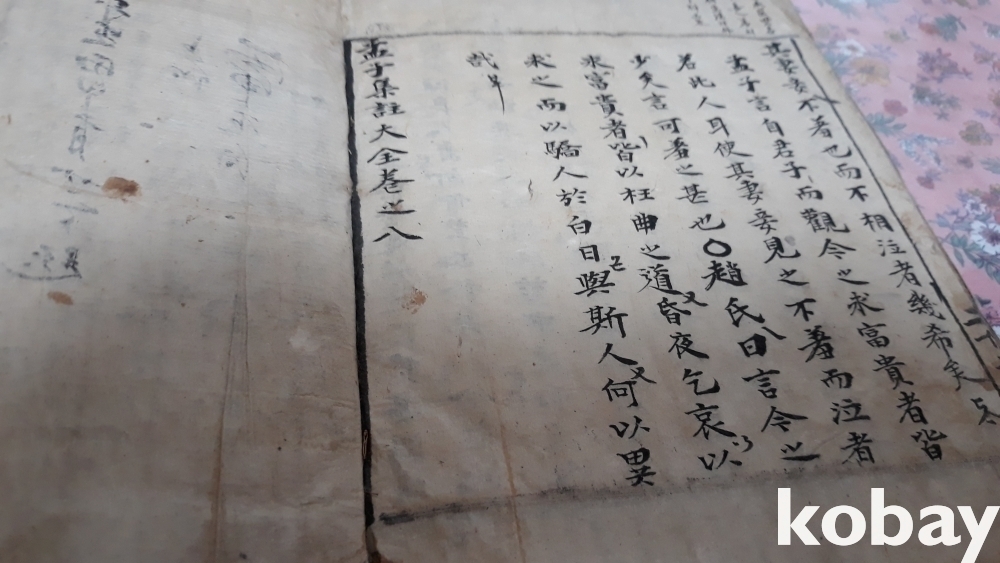 其妻妾不羞也而不相泣者幾希矣
孟子言自君子而觀今之求富貴者皆
若此人耳使其妻妾見之不羞而泣者
少矣言可羞之甚也○趙氏曰言今之
求富貴者皆以枉曲之道昏夜乞哀以
求之而以驕人於白日與斯人何以異
哉
孟子集註大全卷之八
kobay